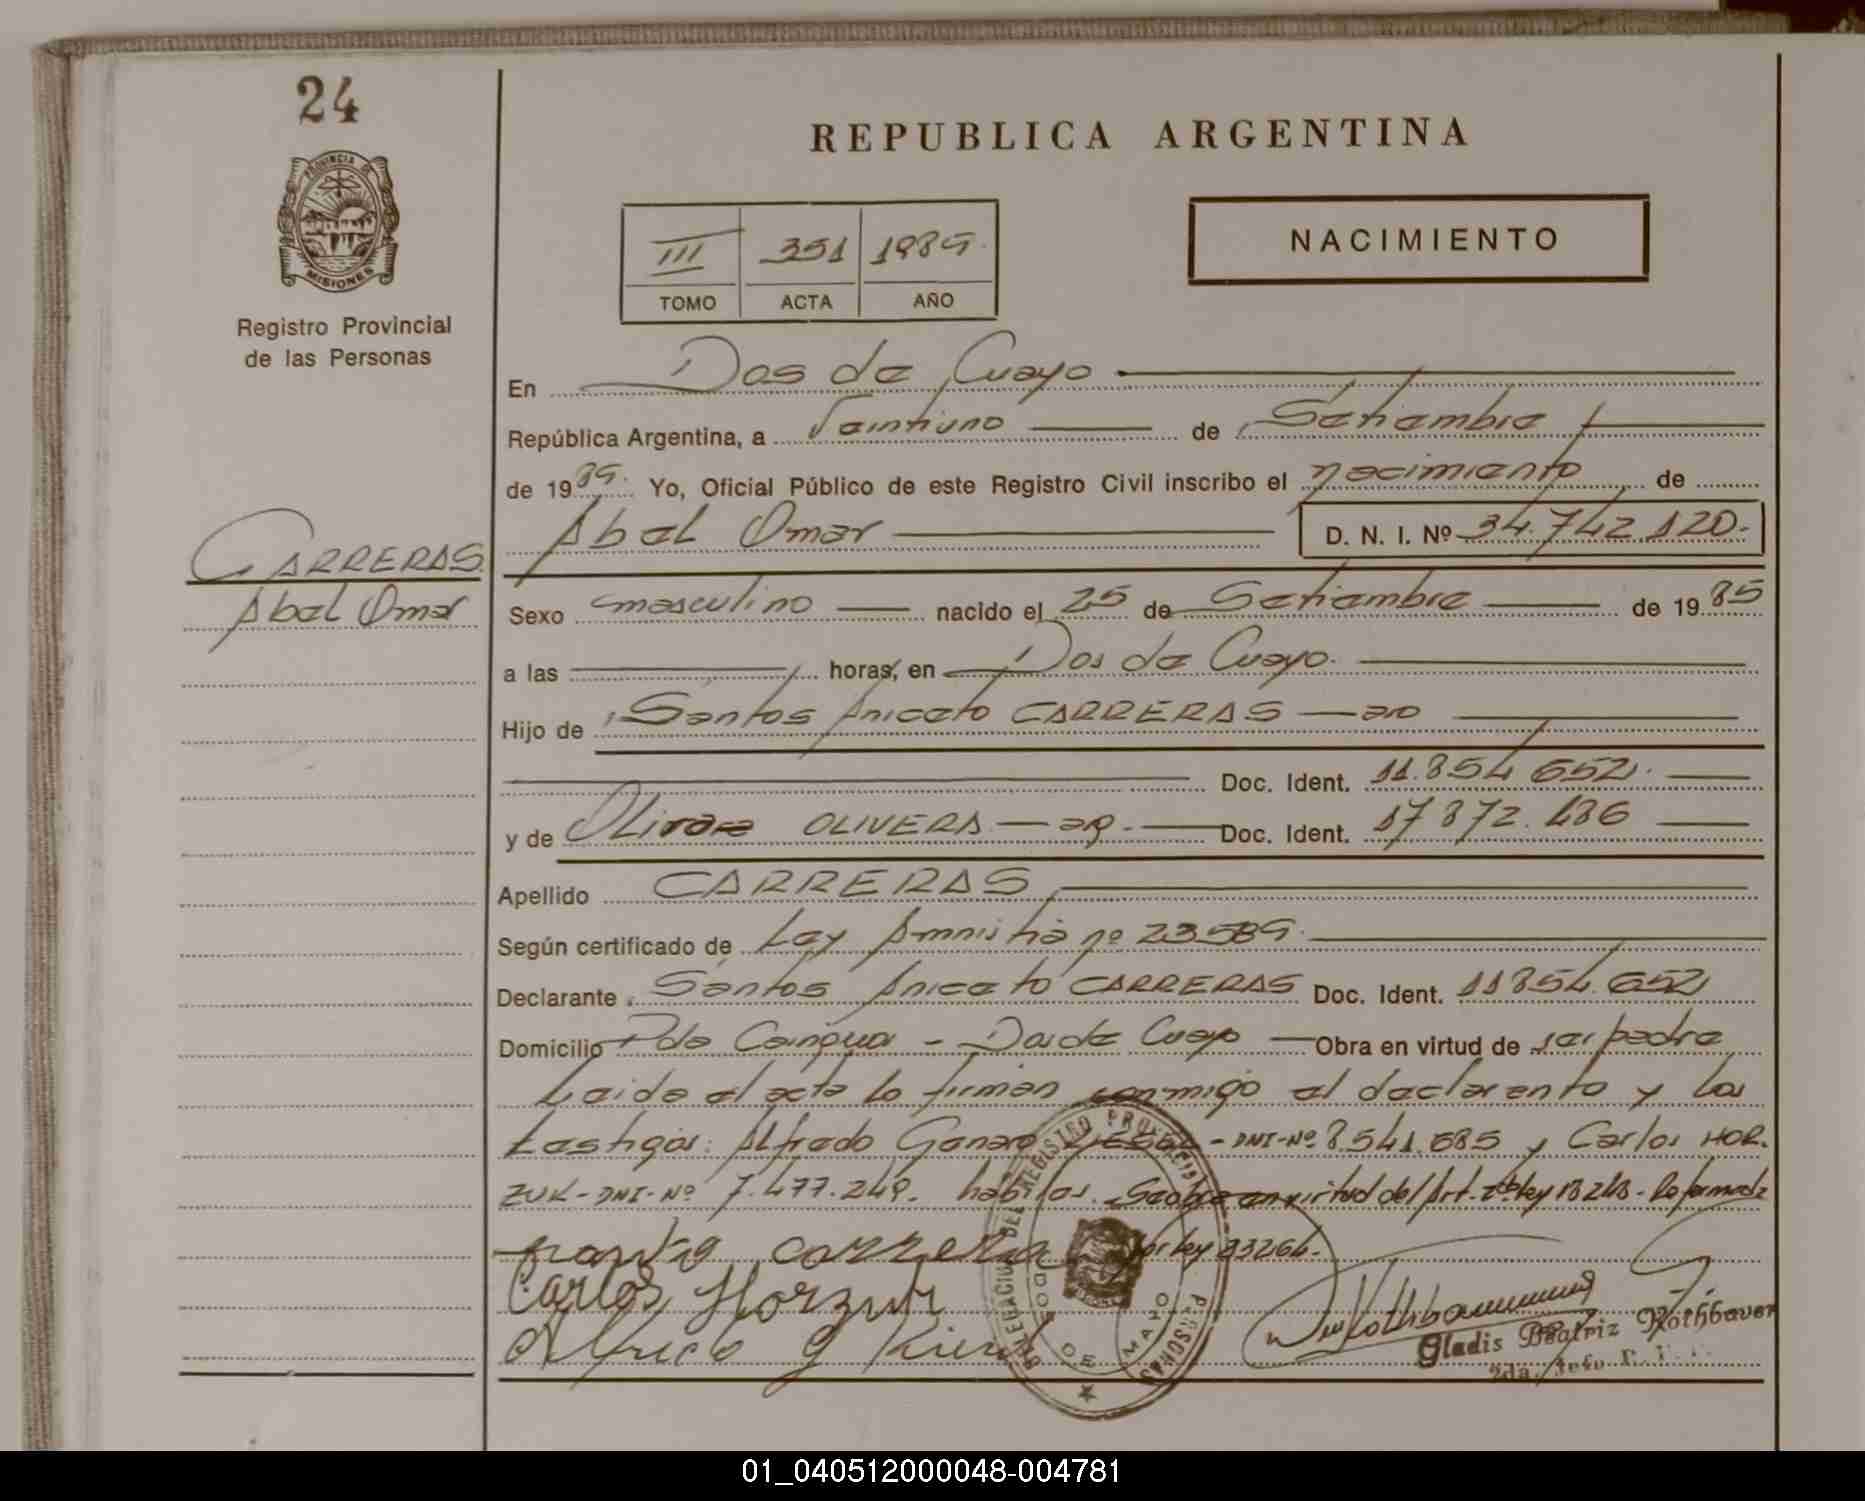 24
REPUBLICA ARGENTINA
PROVINCIA DE
MISIONES
Registro Provincial
de las Personas
III 351 1989.
TOMO ACTA AÑO
NACIMIENTO
En Dos de Mayo
República Argentina, a Veintiuno de Setiembre
de 1989. Yo, Oficial Público de este Registro Civil inscribo el nacimiento de
Abel Omar D. N. I. Nº 34.742.120.-
CARRERAS
Abel Omar
Sexo masculino nacido el 25 de Setiembre de 1985
a las horas, en Dos de Mayo.
Hijo de Santos Aniceto CARRERAS — ar
Doc. Ident. 11.854.652.
y de OLIVERA — ar. Doc. Ident. 17.872.186
Apellido CARRERAS
Según certificado de Ley Amnistia nº 23.589.
Declarante Santos Aniceto CARRERAS Doc. Ident. 11.854.652
Domicilio Pdo - Dos de Mayo Obra en virtud de ser padre
Leida el acta la firman conmigo el declarante y los
testigos: Alfredo Genaro - DNI-Nº 8.541.685 y Carlos HOR-
ZUK-DNI-Nº 7.477.249. habiles. Se obra en virtud del Art. 2º ley 18248-Reformada
por ley 23264.-
carrera
Carlos Horzuk
Alfredo G
DELEGACION DEL REGISTRO PROVINCIAL PERSONAS
DOS DE MAYO
Gladis Beatriz Rothbauer
2da. Jefe R.
01_040512000048-004781